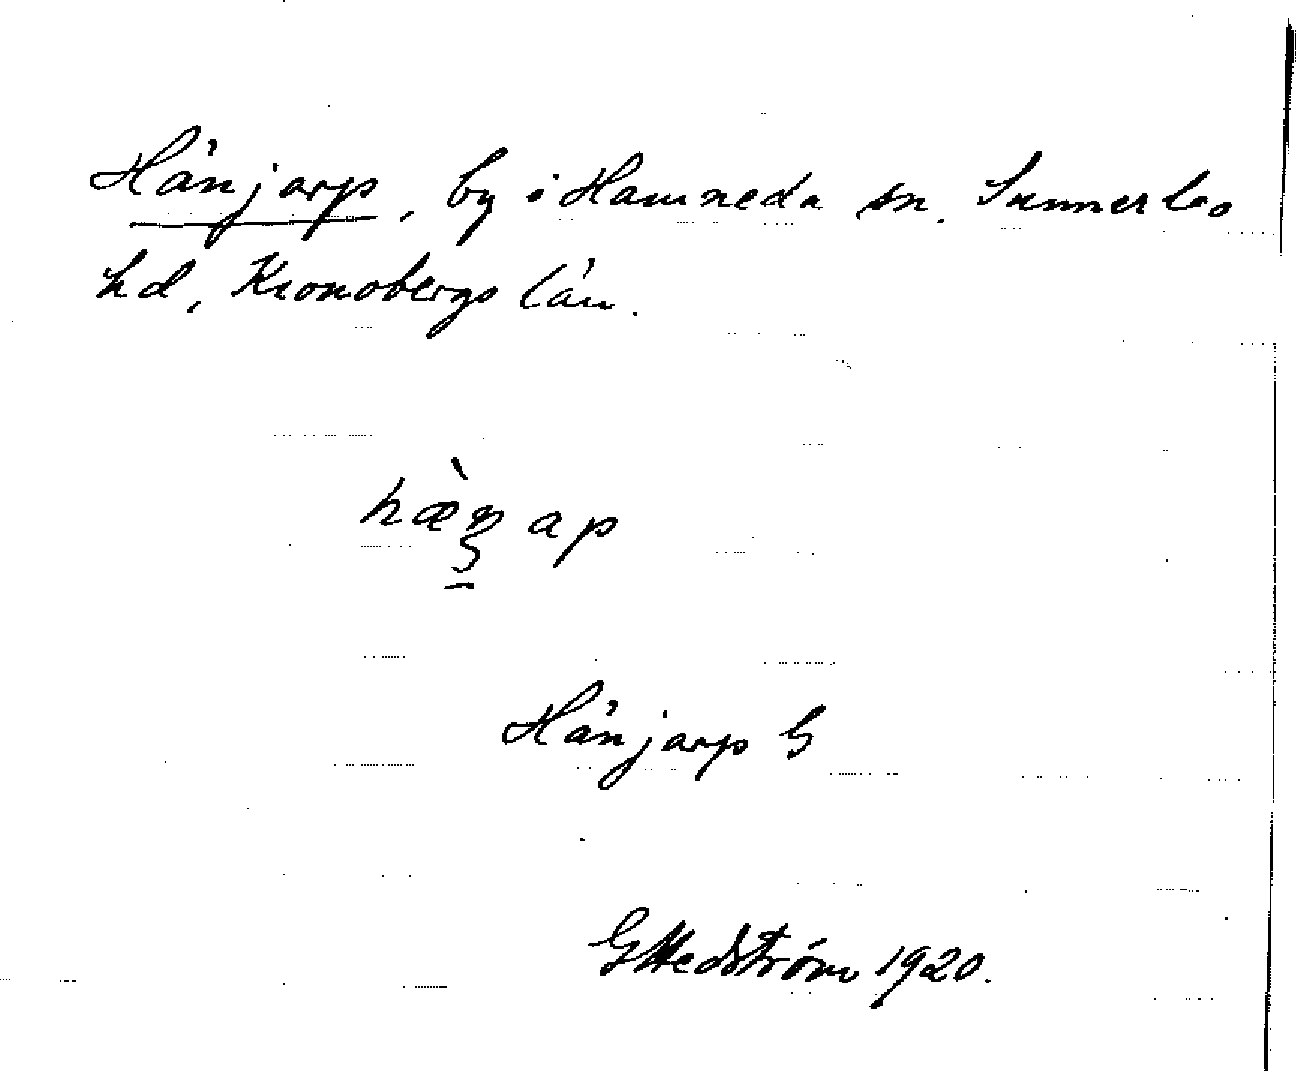 Hänjarp, by i Hamneda sn. Sunnerbo
hd, Kronobergs län.
Hänjarp G
G Hedström 1920.